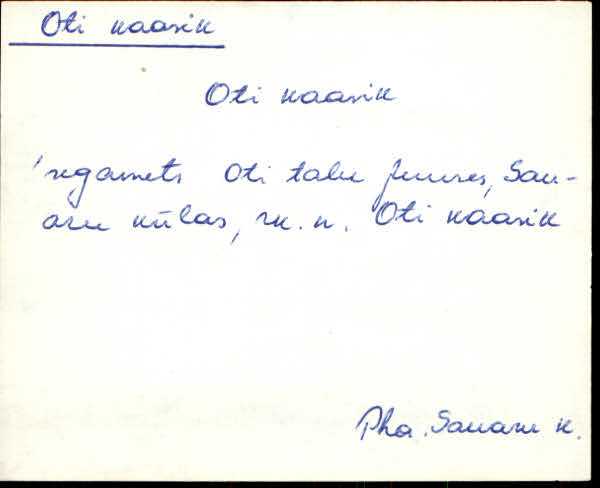 Oti kaasik
Oti kaasik
'segamets Oti talu juures, Sau-
aru külas, rk. n. Oti kaasik
Pha. Sauaru k.